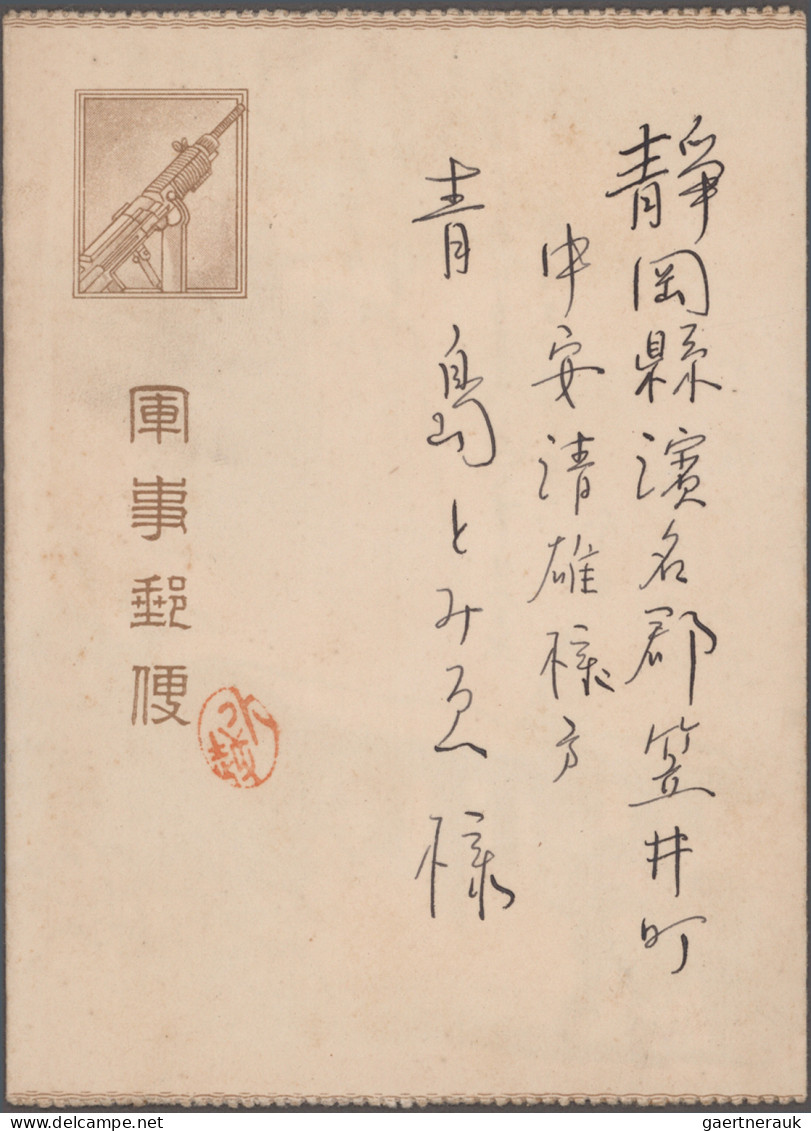 靜岡縣濱名郡笠井町
中安清雄様方
青島とみゑ様
軍事郵便
gaertnerauk